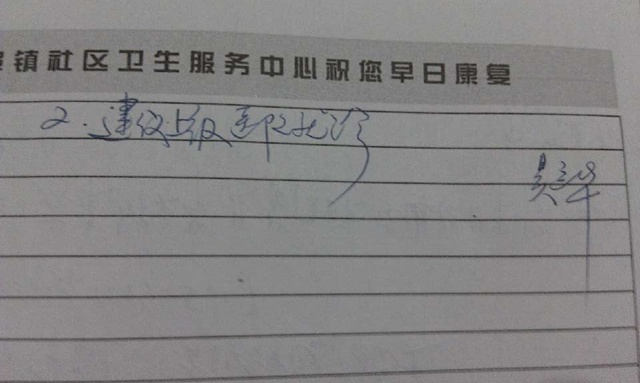 镇社区卫生服务中心祝您早日康复
2.建议上级医院就诊